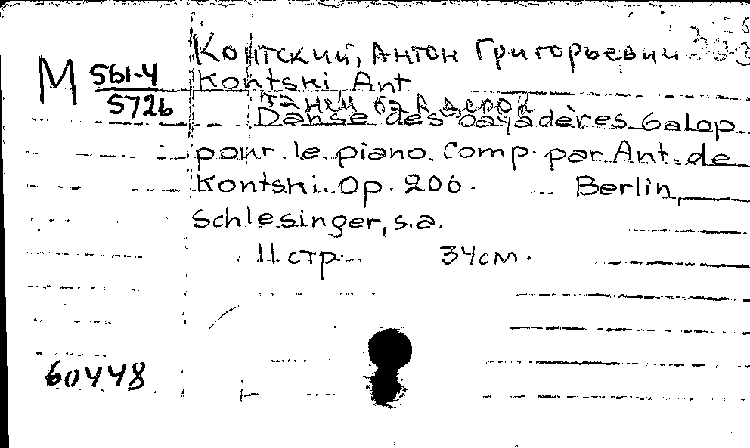 Контский, Антон Григорьевич
М 561-4
572б
Kontski Ant
Танец баядерок
Danse des bayadères Galop
pour le piano. Comp. par Ant. de
Kontski. Op. 206. Berlin,
Schlesinger, s.a.
11 стр. 34 см.
60448